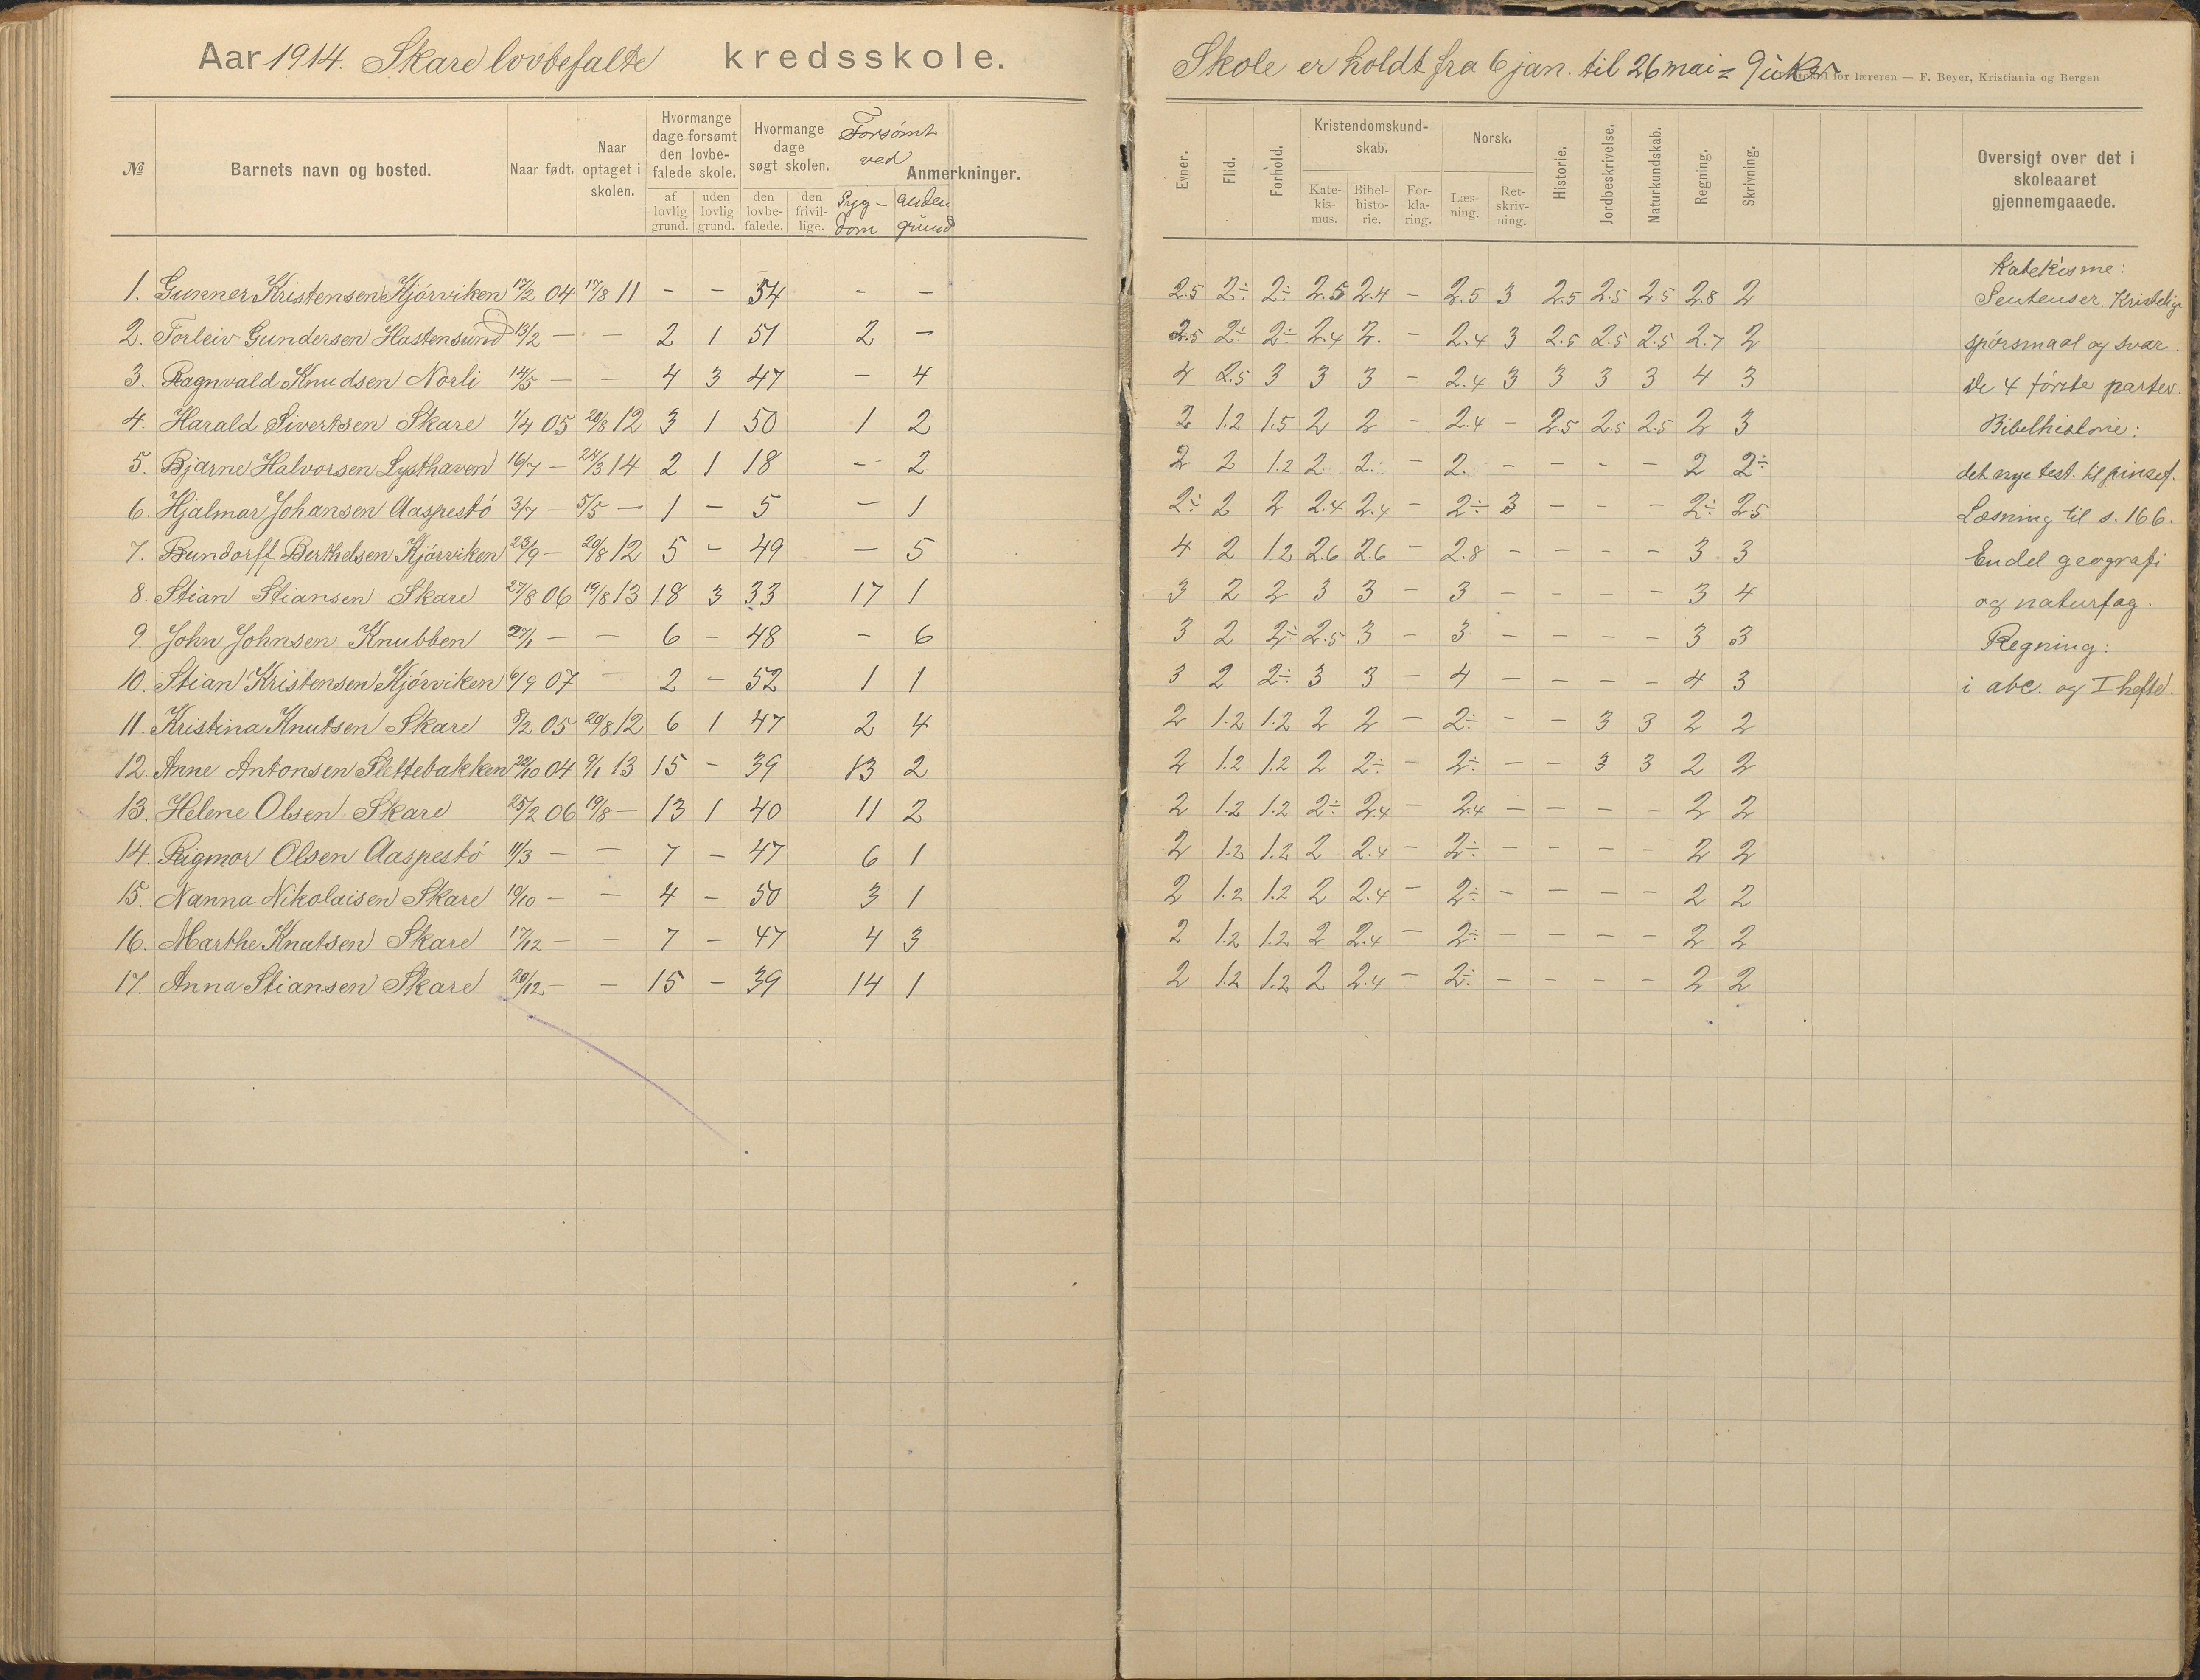 Aar 1914. Skare lovbefalte kredsskole.
№ Barnets navn og bosted. Naar født. Naar optaget i skolen. Hvormange dage forsømt den lovbefalede skole. af lovlig grund. uden lovlig grund. Hvormange dage søgt skolen. den lovbefalede. den frivillige. Forsømt ved Sygdom anden grund Anmerkninger.
1. Gunner Kristensen Kjørviken 17/2 04 17/8 11 - - 54 - -
2. Torleiv Gundersen Hastensund 13/2 - - 2 1 51 2 -
3. Ragnvald Knudsen Norli 14/5 - - 4 3 47 - 4
4. Harald Sivertsen Skare 1/4 05 20/8 12 3 1 50 1 2
5. Bjarne Halvorsen Lysthaven 16/7 - 24/3 14 2 1 18 - 2
6. Hjalmar Johansen Aaspestø 3/7 - 5/5 - 1 - 5 - 1
7. Bundorff Berthelsen Kjørviken 23/9 - 20/8 12 5 - 49 - 5
8. Stian Stiansen Skare 27/8 06 19/8 13 18 3 33 17 1
9. John Johnsen Knubben 27/1 - - 6 - 48 - 6
10. Stian Kristensen Kjørviken 6/9 07 - 2 - 52 1 1
11. Kristina Knutsen Skare 8/2 05 20/8 12 6 1 47 2 4
12. Anne Antonsen Slettebakken 22/10 04 9/1 13 15 - 39 13 2
13. Helene Olsen Skare 25/2 06 19/8 - 13 1 40 11 2
14. Rigmor Olsen Aaspestø 11/3 - - 7 - 47 6 1
15. Nanna Nikolaisen Skare 19/10 - - 4 - 50 3 1
16. Marthe Knutsen Skare 17/12 - - 7 - 47 4 3
17. Anna Stiansen Skare 20/12 - - 15 - 39 14 1
Skole er holdt fra 6 jan. til 26 mai = 9 uker
for læreren — F. Beyer, Kristiania og Bergen
Evner. Flid. Forhold. Kristendomskundskab. Katekismus. Bibelhistorie. Forklaring. Norsk. Læsning. Retskrivning. Historie. Jordbeskrivelse. Naturkundskab. Regning. Skrivning. Oversigt over det i skoleaaret gjennemgaaede.
2.5 2÷ 2÷ 2.5 2.4 - 2.5 3 2.5 2.5 2.5 2.8 2
2.5 2÷ 2÷ 2.4 2. - 2.4 3 2.5 2.5 2.5 2.7 2
4 2.5 3 3 3 - 2.4 3 3 3 3 4 3
2 1.2 1.5 2 2 - 2.4 - 2.5 2.5 2.5 2 3
2 2 1.2 2 2. - 2. - - - - 2 2÷
2÷ 2 2 2.4 2.4 - 2÷ 3 - - - 2÷ 2.5
4 2 1.2 2.6 2.6 - 2.8 - - - - 3 3
3 2 2 3 3 - 3 - - - - 3 4
3 2 2÷ 2.5 3 - 3 - - - - 3 3
3 2 2÷ 3 3 - 4 - - - - 4 3
2 1.2 1.2 2 2 - 2÷ - - 3 3 2 2
2 1.2 1.2 2 2÷ - 2÷ - - 3 3 2 2
2 1.2 1.2 2÷ 2.4 - 2.4 - - - - 2 2
2 1.2 1.2 2 2.4 - 2÷ - - - - 2 2
2 1.2 1.2 2 2.4 - 2÷ - - - - 2 2
2 1.2 1.2 2 2.4 - 2÷ - - - - 2 2
2 1.2 1.2 2 2.4 - 2÷ - - - - 2 2
Katekisme:
Sentenser. Kristelige
spørsmaal og svar.
De 4 første parter.
Bibelhistorie:
det nye test. til pinsef.
Læsning til s. 166.
Endel geografi
og naturfag.
Regning:
i abc. og I hefte.